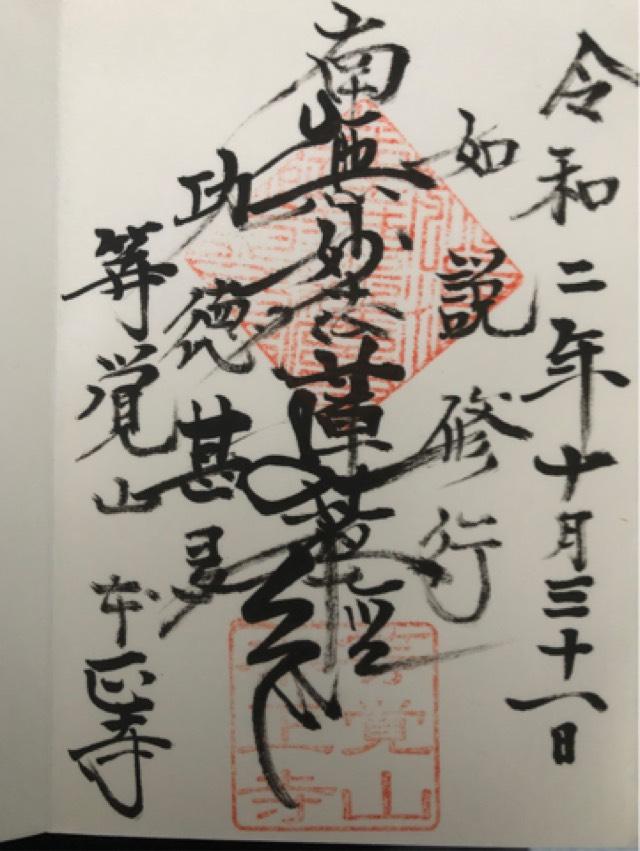 令和二年十月三十一日
如説修行
南無妙法蓮華経
功徳甚多
等覚山 本正寺
等覚山
本正寺